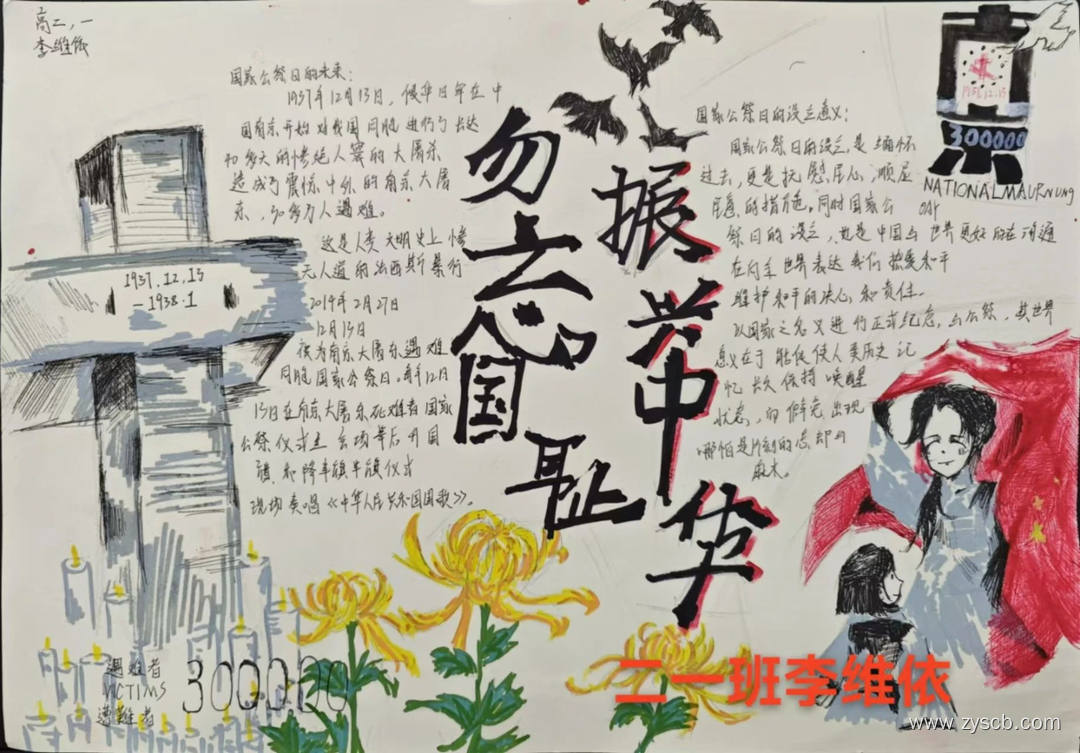 高二,一
李维依
国家公祭日的未来:
1937年12月13日,侵华日军在中
国南京开始对我国同胞进行了长达
40多天的惨绝人寰的大屠杀
造成了震惊中外的南京大屠
杀,30多万人遇难。
这是人类文明史上惨
无人道的法西斯暴行
2014年2月27日
12月13日
被为南京大屠杀遇难
同胞国家公祭日。每年12月
13日在南京大屠杀死难者国家
公祭仪式主会场举行升国
旗和降半旗半旗仪式
现场奏唱《中华人民共和国国歌》。
1937.12.13
-1938.1
勿忘国耻
振兴中华
国家公祭日的设立意义:
国家公祭日的设立,是缅怀
过去,更是抚慰民心、顺应
民意的措施。同时国家公
祭日的设立,也是中国与世界更好的在沟通
在向全世界表达我们热爱和平
维护和平的决心和责任。
以国家之名义进行正式纪念与公祭,其世界
意义在于能促使人类历史记
忆长久保持唤醒
状态,而避免出现
哪怕是片刻的忘却与
麻木。
1937.12.13
300000
NATIONALMAURNUNG
DAY
遇难者
VICTIMS
遭難者
300000
二一班李维依
www.zyscb.com